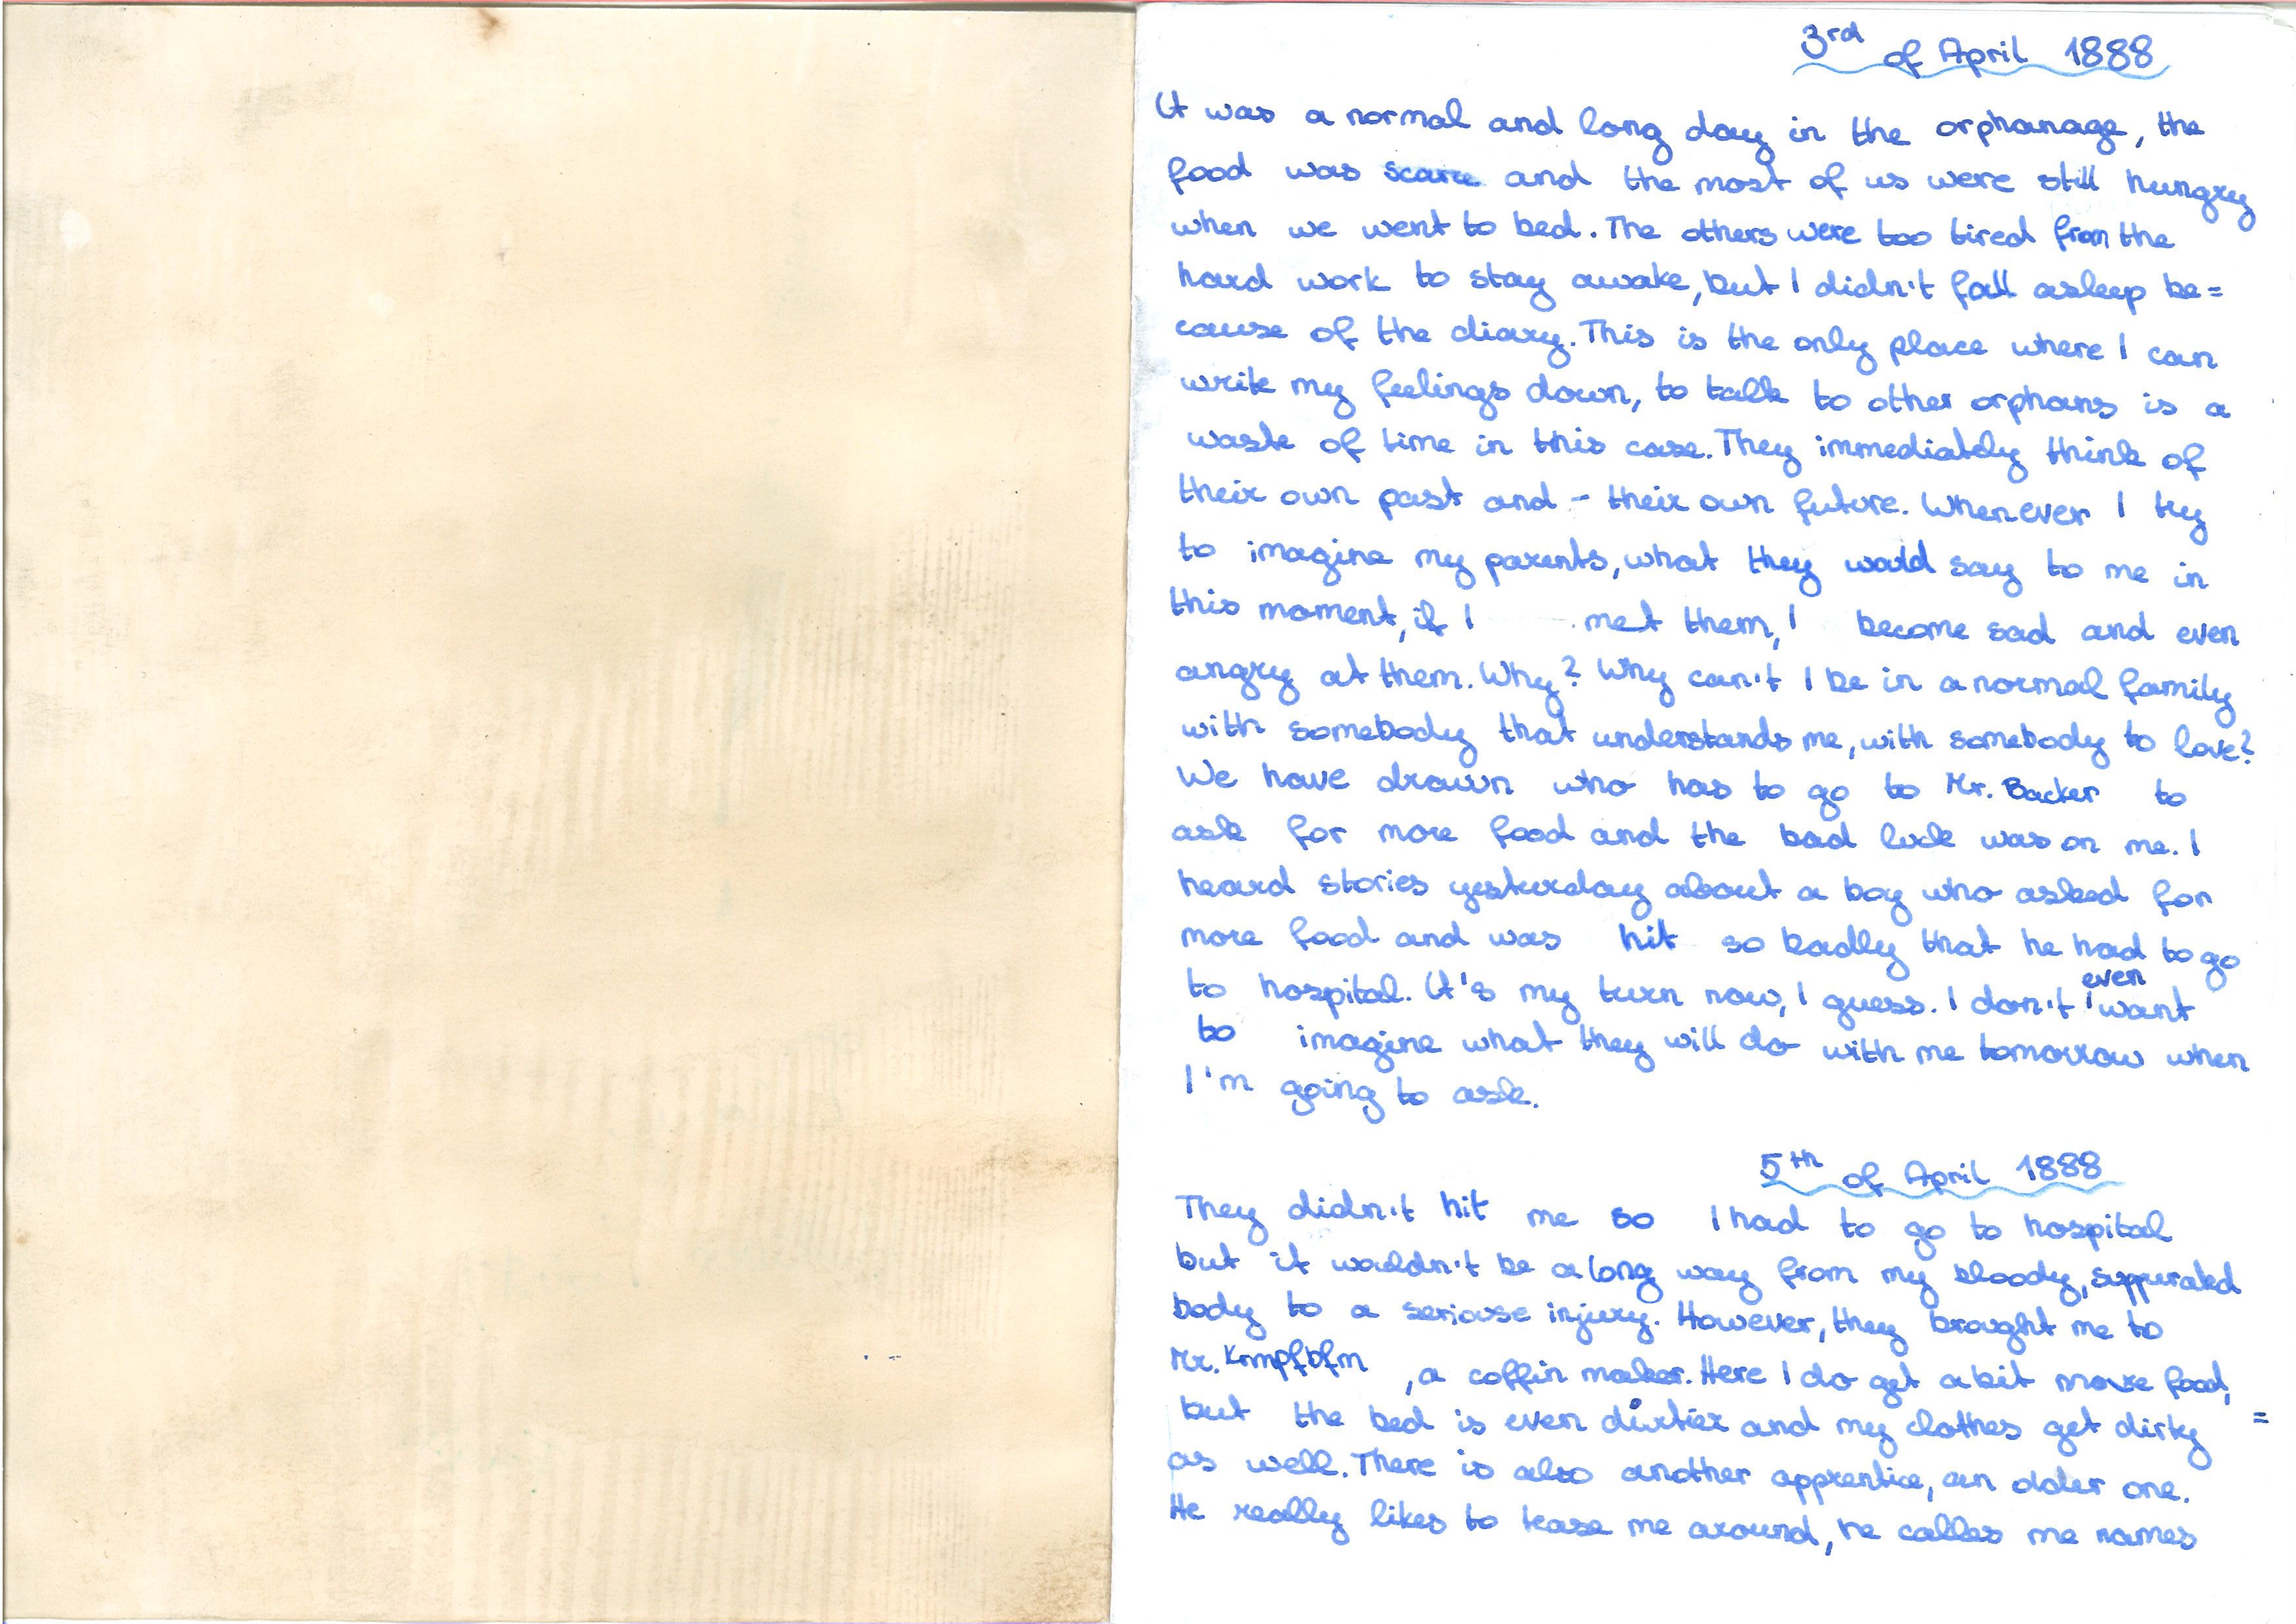 3rd of April 1888
It was a normal and long day in the orphanage, the
food was scarce and the most of us were still hungry
when we went to bed. The others were too tired from the
hard work to stay awake, but I didn't fall asleep be=
cause of the diary. This is the only place where I can
write my feelings down, to talk to other orphans is a
waste of time in this case. They immediately think of
their own past and - their own future. Whenever I try
to imagine my parents, what they would say to me in
this moment, if I met them, I become sad and even
angry at them. Why? Why can't I be in a normal family
with somebody that understands me, with somebody to love?
We have drawn who has to go to Mr. Backer to
ask for more food and the bad luck was on me. I
heard stories yesturday about a boy who asked for
more food and was hit so badly that he had to go
to hospital. It's my turn now, I guess. I don't even want
to imagine what they will do with me tomorrow when
I'm going to ask.
5th of April 1888
They didn't hit me so I had to go to hospital
but it wouldn't be a long way from my bloody, suppurated
body to a seriouse injury. However, they brought me to
Mr. Krmpfbfm, a coffin maker. Here I do get a bit more food,
but the bed is even dirtier and my clothes get dirty =
as well. There is also another apprentice, an older one.
He really likes to tease me around, he calles me names